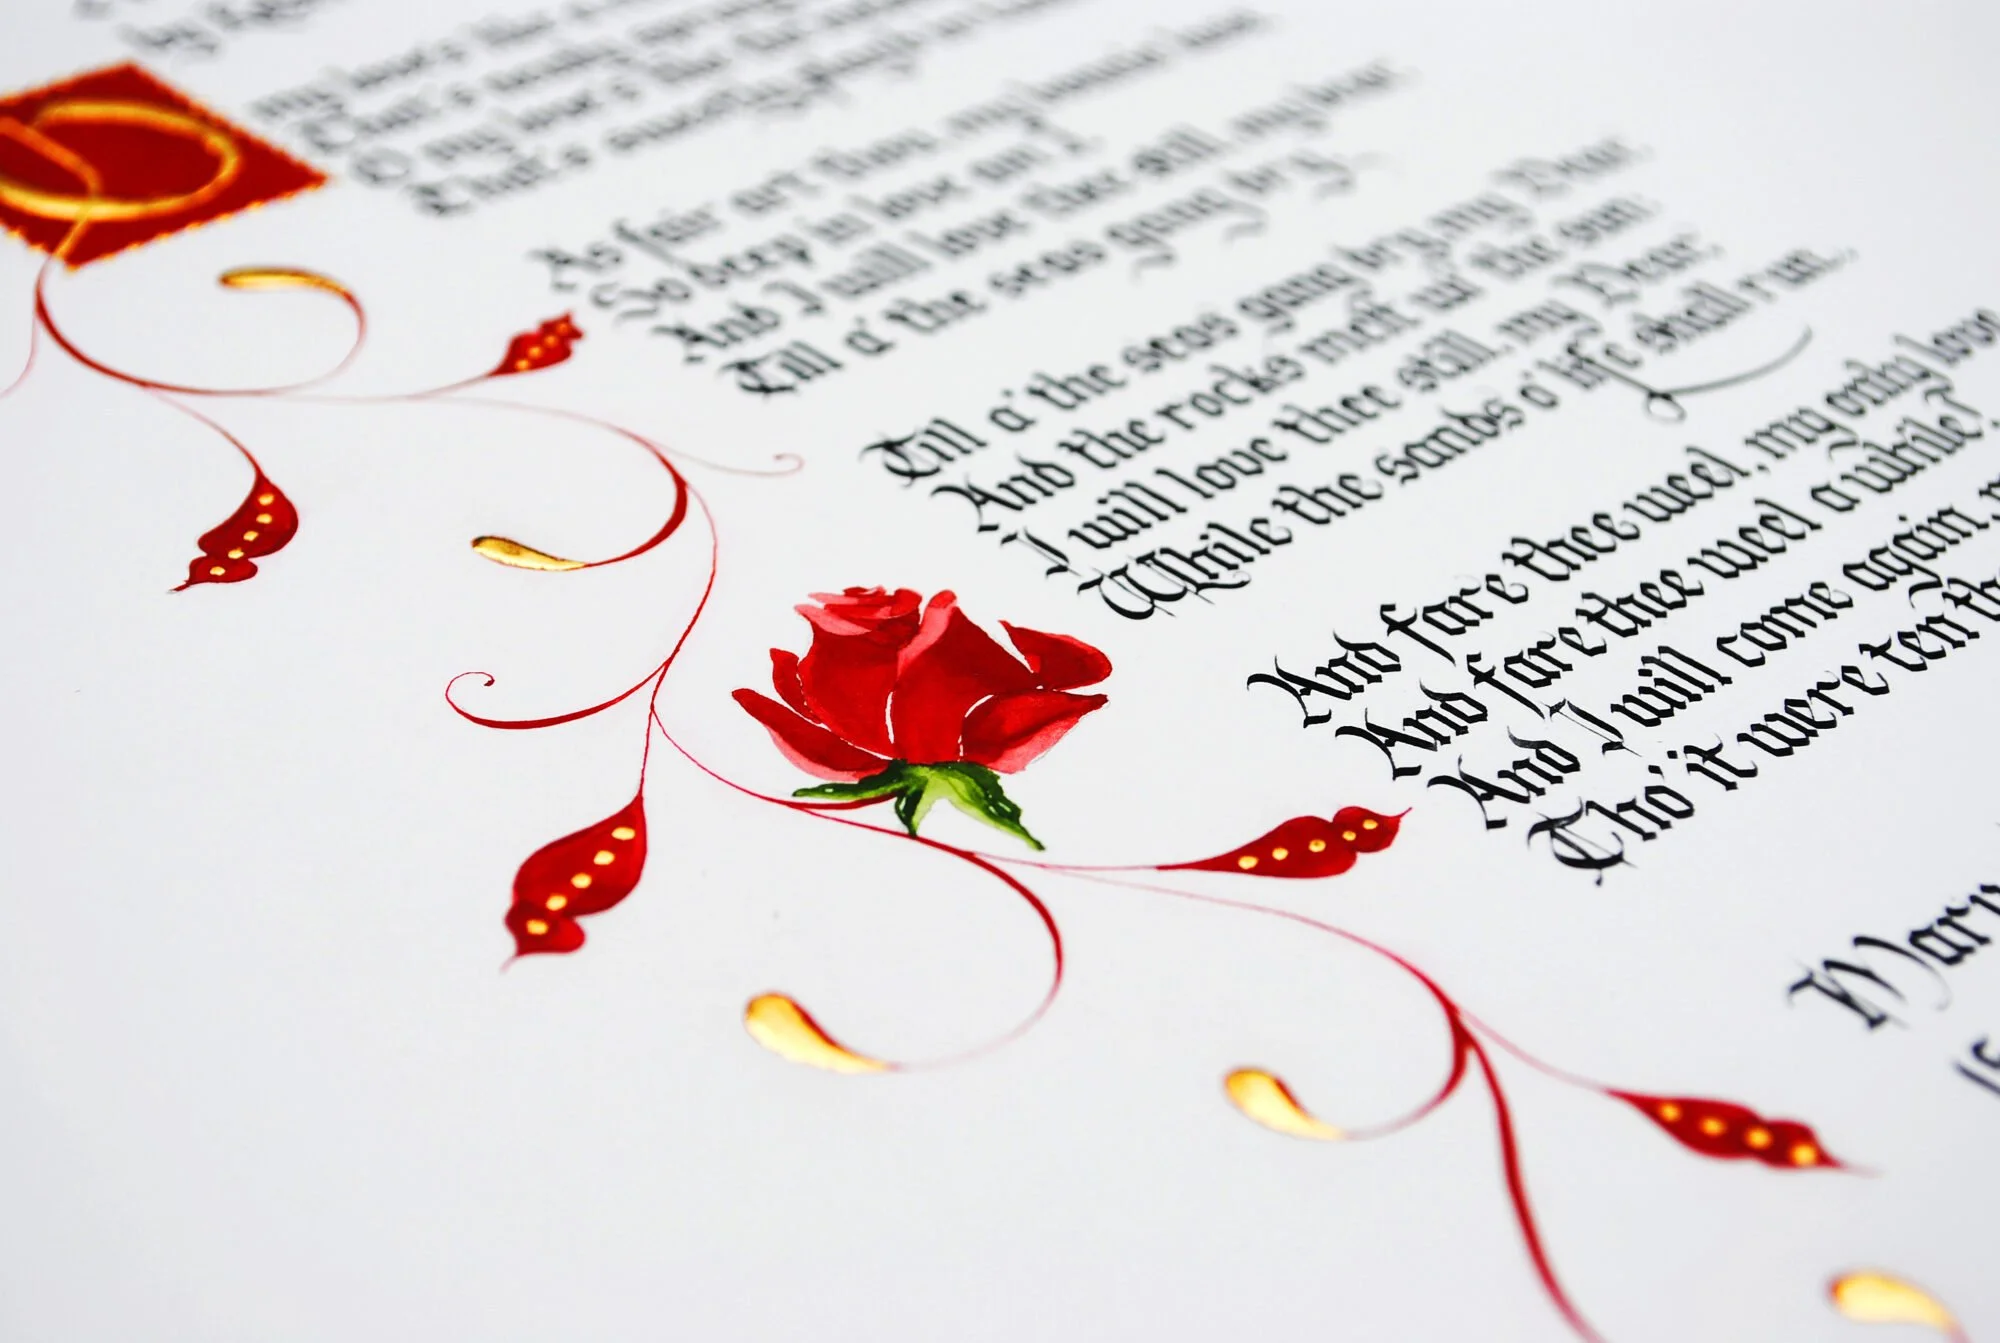 by
my luve's like a
That's newly sprung
O my luve's like the
That's sweetly play'd in
As fair art thou, my bonnie lass,
So deep in love am I
And I will love thee still, my dear,
Till a' the seas gang dry.
Till a' the seas gang dry, my Dear,
And the rocks melt wi' the sun:
I will love thee still, my Dear,
While the sands o' life shall run.
And fare thee weel, my only love
And fare thee weel a while!
And I will come again, m
Tho' it were ten th
Mary